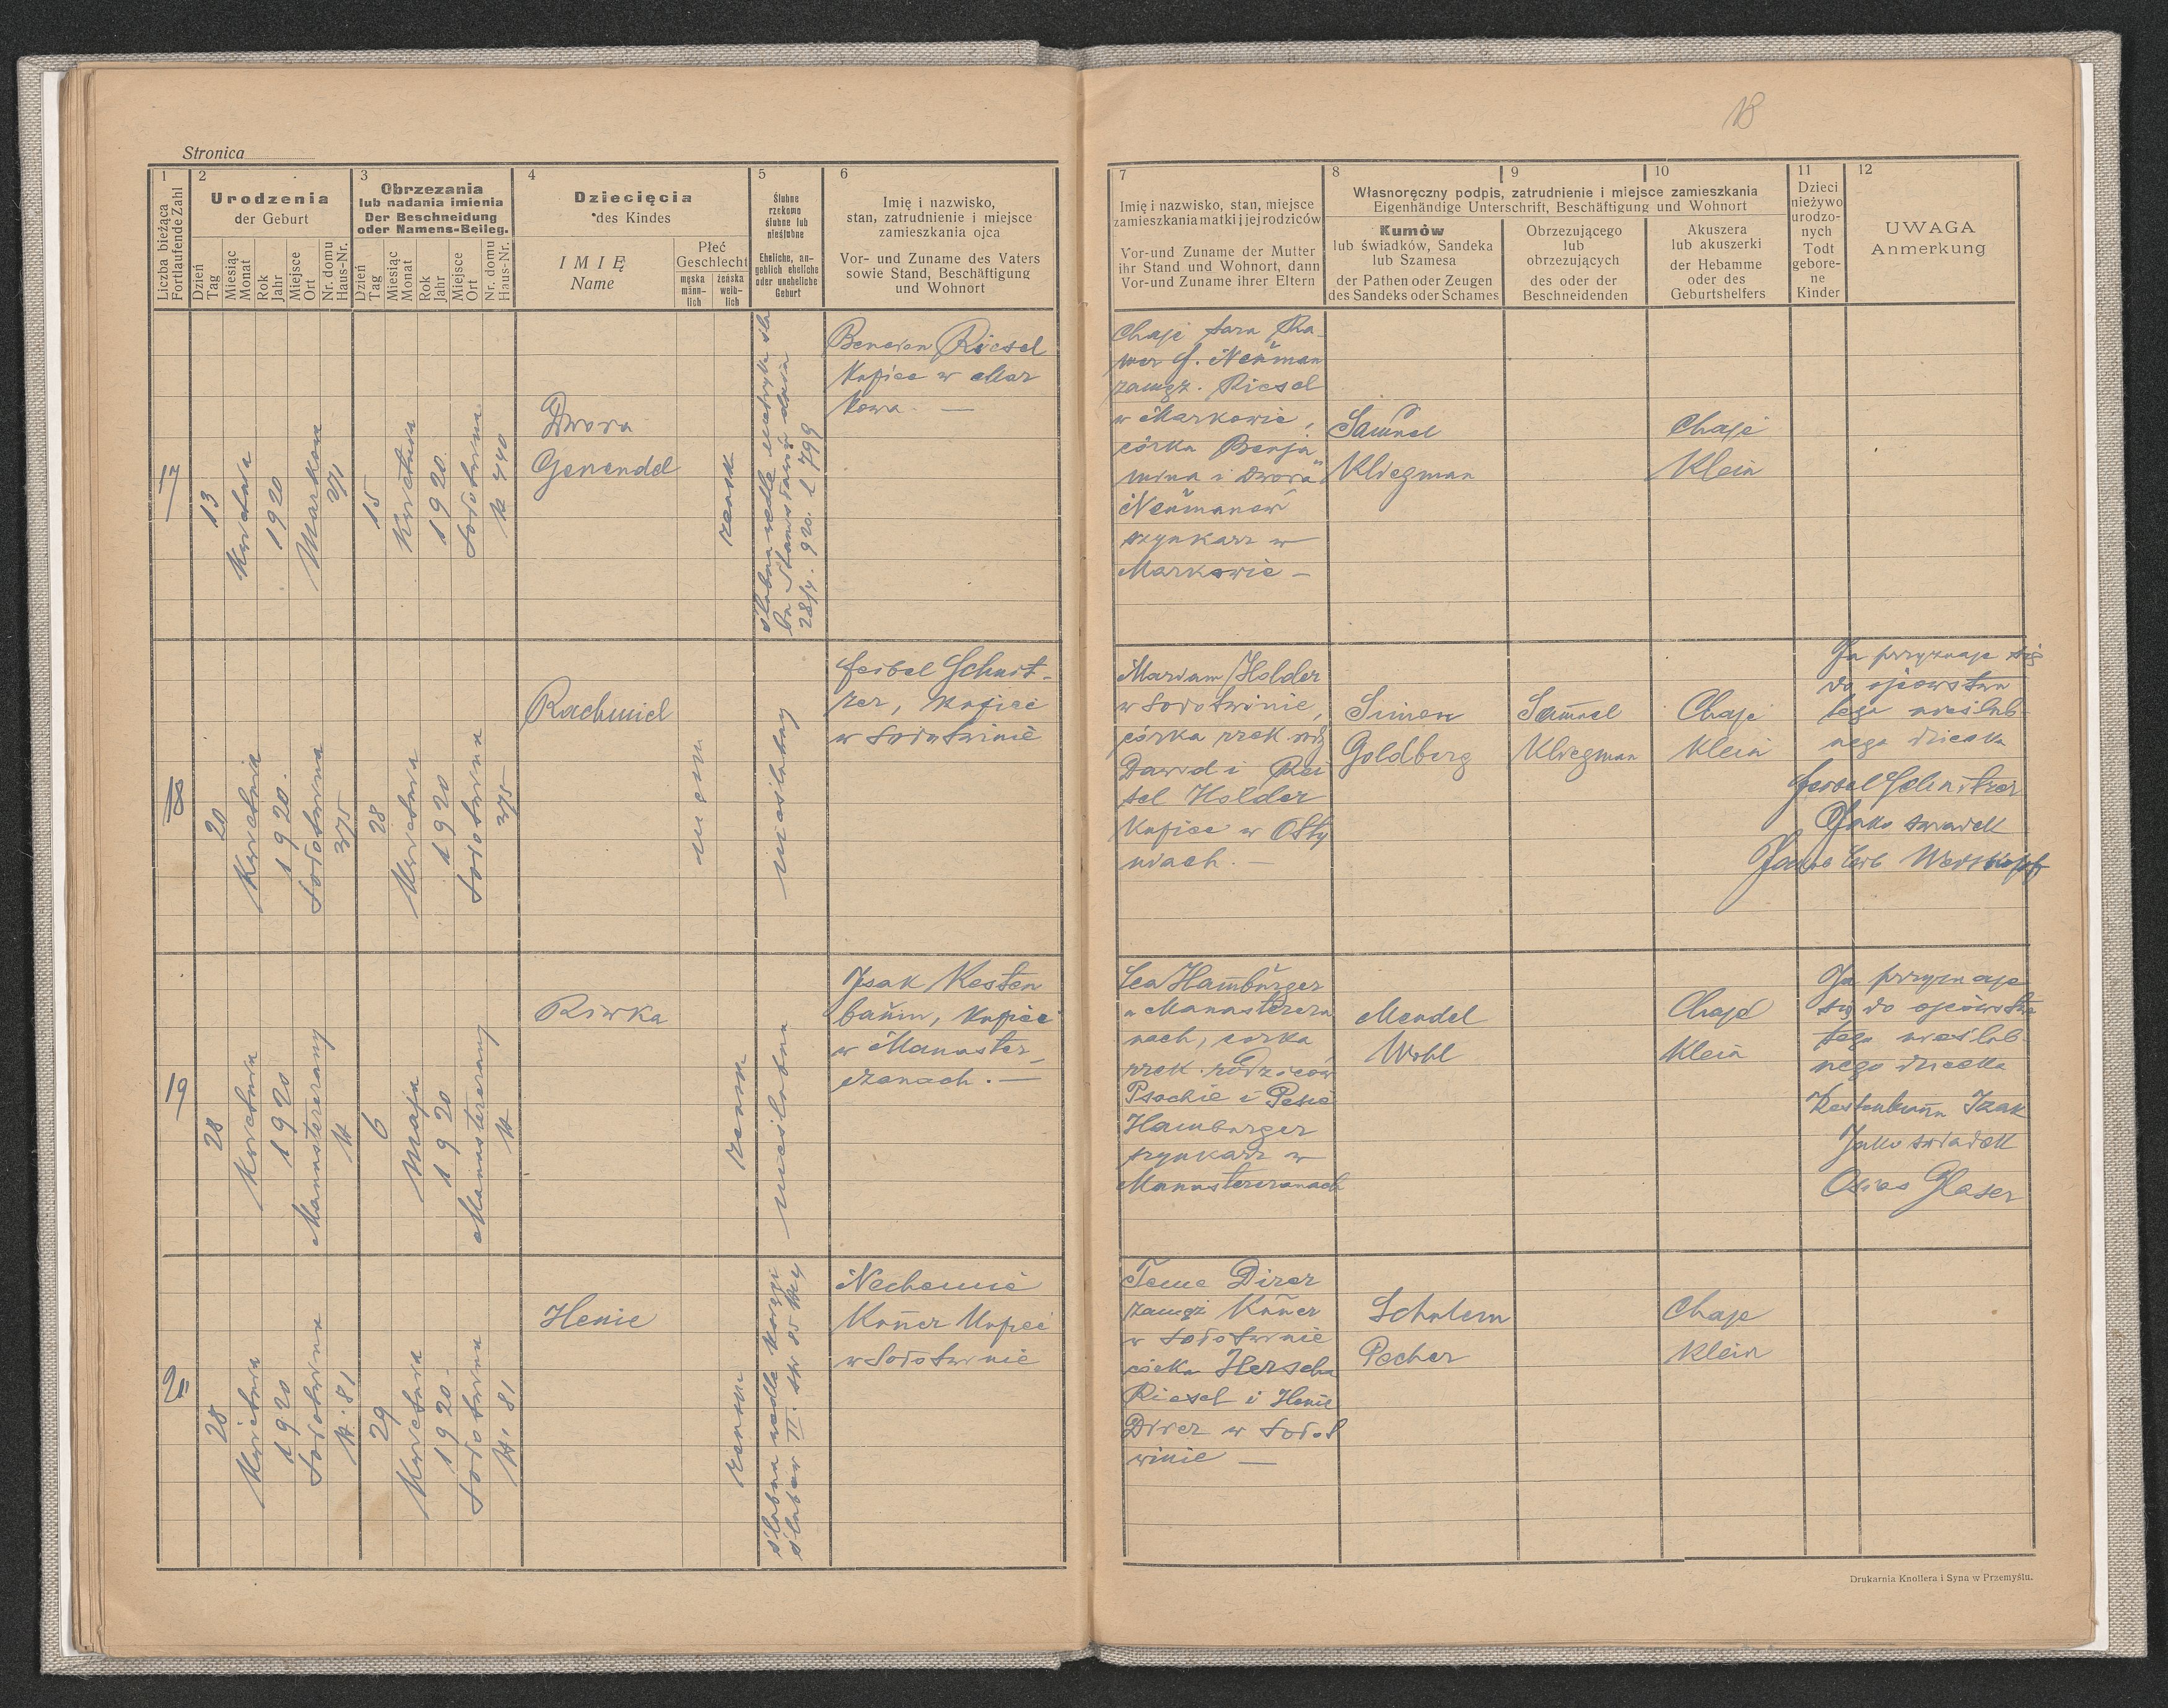 18
Stronica
1
Liczba bieżąca
Fortlaufende Zahl
2
Urodzenia
der Geburt
Dzień
Tag
Miesiąc
Monat
Rok
Jahr
Miejsce
Ort
Nr. domu
Haus-Nr.
3
Obrzezania
lub nadania imienia
Der Beschneidung
oder Namens-Beileg.
Dzień
Tag
Miesiąc
Monat
Rok
Jahr
Miejsce
Ort
Nr. domu
Haus-Nr.
4
Dziecięcia
des Kindes
IMIĘ
Name
Płeć
Geschlecht
męska
männ-
lich
żeńska
weib-
lich
5
Ślubne
rzekomo
ślubne lub
nieślubne
Eheliche, an-
geblich eheliche
oder uneheliche
Geburt
6
Imię i nazwisko,
stan, zatrudnienie i miejsce
zamieszkania ojca
Vor- und Zuname des Vaters
sowie Stand, Beschäftigung
und Wohnort
7
Imię i nazwisko, stan, miejsce
zamieszkania matki i jej rodziców
Vor-und Zuname der Mutter
ihr Stand und Wohnort, dann
Vor-und Zuname ihrer Eltern
8
9
10
Własnoręczny podpis, zatrudnienie i miejsce zamieszkania
Eigenhändige Unterschrift, Beschäftigung und Wohnort
Kumów
lub świadków, Sandeka
lub Szamesa
der Pathen oder Zeugen
des Sandeks oder Schames
Obrzezującego
lub
obrzezujących
des oder der
Beschneidenden
Akuszera
lub akuszerki
der Hebamme
oder des
Geburtshelfers
11
Dzieci
nieżywo
urodzo-
nych
Todt
gebore-
ne
Kinder
12
UWAGA
Anmerkung
17
13
Kwietnia
1920
Markowa
15
Kwietnia
1920.
Sołotwina
Dwora
Genendel
żeńsk
28/4. 920. L 799
Riesel
Kupiec w Mar
kowa. —
Chaje Sara
Neuman
zamęż. Riesel
w Markowie,
córka Benja
mina i Dwora
Neumanów
szynkarz w
Markowie —
Samuel
Kliegman
Chaje
Klein
18
20
Kwietnia
1920.
Sołotwina
375
28
Kwietnia
1920
Sołotwina
375
Rachmiel
męsk
nieślubny
Feibel Schnit-
zer, Kupiec
w Sołotwinie
Mariam Holder
w Sołotwinie,
córka rzek.
Dawid i Rei
sel Holder
Kupiec w Otty
niach. —
Simon
Goldberg
Samuel
Kliegman
Chaje
Klein
Ja przyznaje się
do ojcowstwa
tego nieślub-
nego dziecka
Feibel Schnitzer
Jako świadek
19
28
Kwietnia
1920
Manasterczany
6
Maja
1920
Manasterczany
Riwka
żeńsk
nieślubna
Isak Kesten
baum, Kupiec
w Manaster-
czanach. —
Lea Hamburger
w Manastercza
nach, córka
rzek. rodziców
Hamburger
szynkarz w
Manasterczanach
Mendel
Wohl
Chaje
Klein
Ja przyznaje
się do ojcowstwa
tego nieślub-
nego dziecka
Kestenbaum Izak
Jako świadek
Osias Glaser
20
28
Kwietnia
1920
Sołotwina
N. 81
29
Kwietnia
1920.
Sołotwina
N. 81
Henie
żeńsk
Nechemie
Kupiec
w Sołotwinie
Teme Direr
zamęż
w Sołotwinie
córka Herscha
Riesel i Henie
Direr w Sołot
winie —
Schulem
Pecher
Chaje
Klein
Drukarnia Knollera i Syna w Przemyślu.